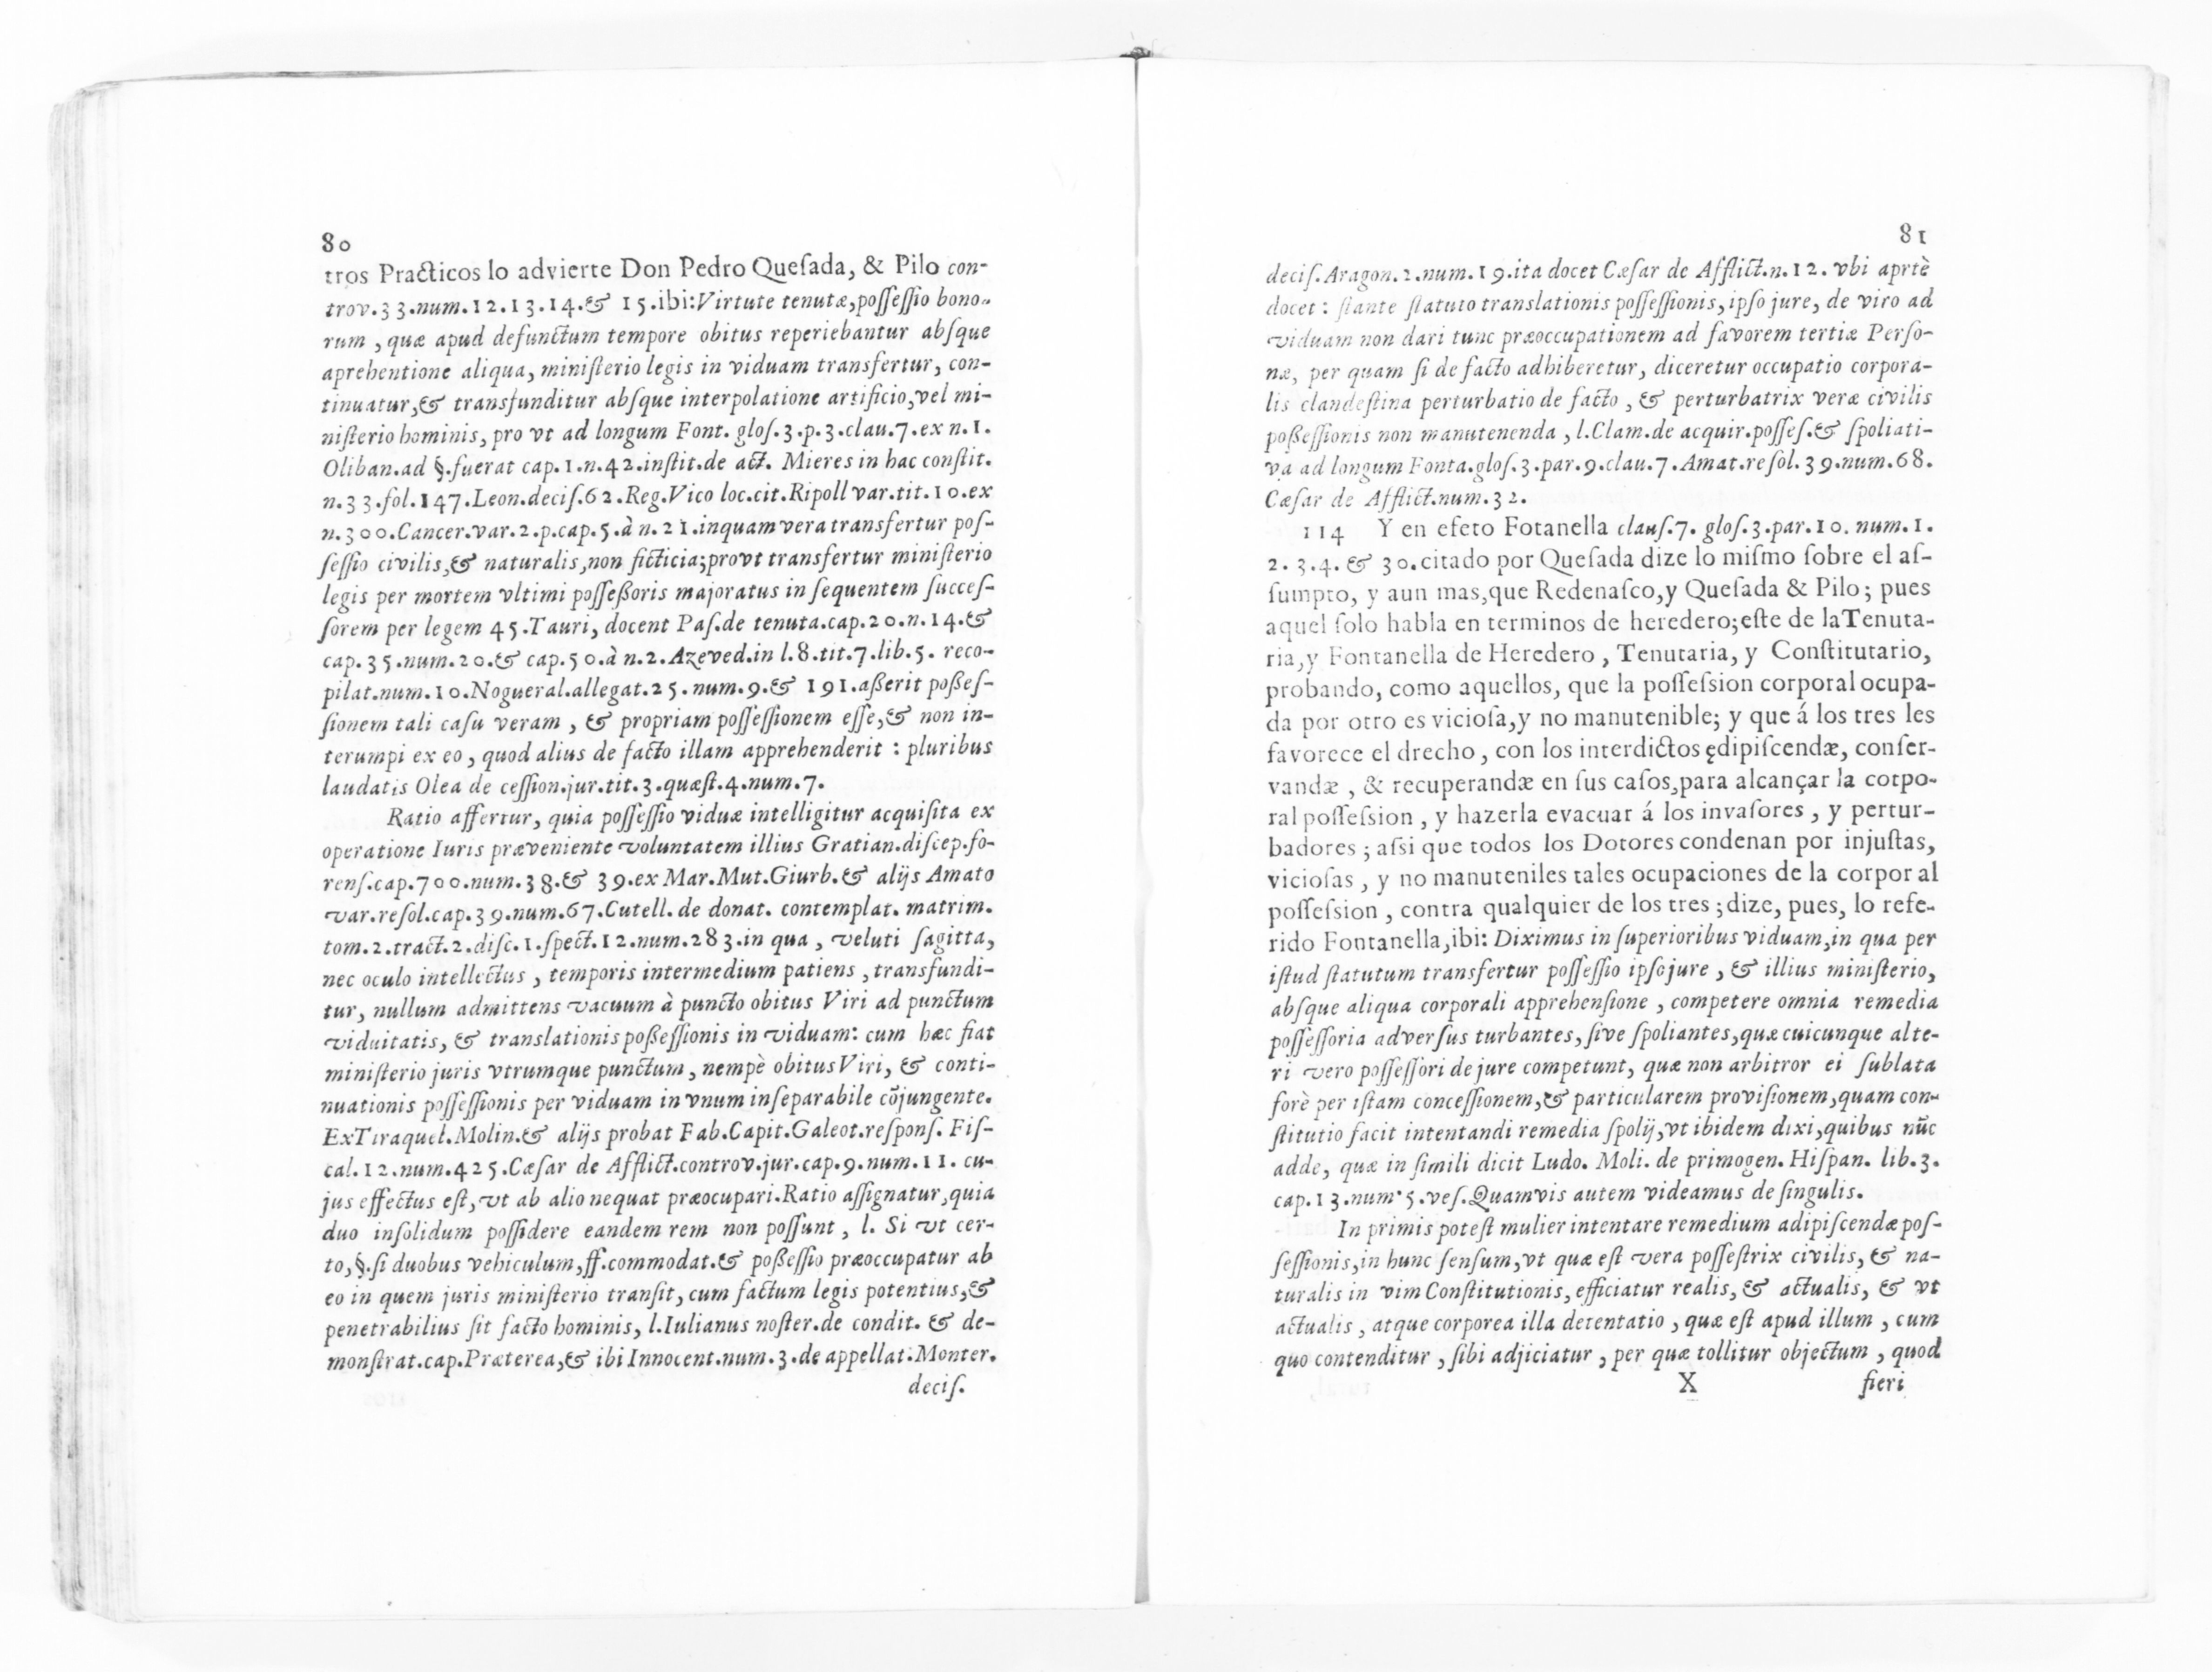 80
tros Practicos lo advierte Don Pedro Queſada, & Pilo con-
trov.33.num.12.13.14.& 15.ibi:Virtute tenutæ,poſſeſſio bono-
rum , quæ apud defunctum tempore obitus reperiebantur abſque
aprehentione aliqua, miniſterio legis in viduam transfertur, con-
tinuatur,& transfunditur abſque interpolatione artificio,vel mi-
niſterio hominis, pro vt ad longum Font. gloſ.3.p.3.clau.7.ex n.1.
Oliban.ad §.fuerat cap.1.n.42.inſtit.de act. Mieres in hac conſtit.
n.33.fol.147.Leon.deciſ.62.Reg.Vico loc.cit.Ripoll var.tit.10.ex
n.300.Cancer.var.2.p.cap.5.à n.21.inquam vera transfertur poſ-
ſeſſio civilis,& naturalis,non ficticia;provt transfertur miniſterio
legis per mortem vltimi poſſeßoris majoratus in ſequentem ſucceſ-
ſorem per legem 45.Tauri, docent Paſ.de tenuta.cap.20.n.14.&
cap.35.num.20.& cap.50.à n.2.Azeved.in l.8.tit.7.lib.5. reco-
pilat.num.10.Nogueral.allegat.25.num.9.& 191.aßerit poßeſ-
ſionem tali caſu veram , & propriam poſſeſſionem eſſe,& non in-
terumpi ex eo , quod alius de facto illam apprehenderit : pluribus
laudatis Olea de ceſſion.jur.tit.3.quæſt.4.num.7.
Ratio affertur, quia poſſeſſio viduæ intelligitur acquiſita ex
operatione Iuris præveniente voluntatem illius Gratian.diſcep.fo-
renſ.cap.700.num.38.& 39.ex Mar.Mut.Giurb.& alijs Amato
var.reſol.cap.39.num.67.Cutell. de donat. contemplat. matrim.
tom.2.tract.2.diſc.1.ſpect.12.num.283.in qua , veluti ſagitta,
nec oculo intellectus , temporis intermedium patiens , transfundi-
tur, nullum admittens vacuum à puncto obitus Viri ad punctum
viduitatis, & translationis poßeſſionis in viduam: cum hæc fiat
miniſterio juris vtrumque punctum , nempè obitus Viri, & conti-
nuationis poſſeſſionis per viduam in vnum inſeparabile cõjungente.
Ex Tiraquel.Molin.& alijs probat Fab.Capit.Galeot.reſponſ. Fiſ-
cal.12.num.425.Cæſar de Afflict.controv.jur.cap.9.num.11. cu-
jus effectus eſt, vt ab alio nequat præocupari.Ratio aſſignatur,quia
duo inſolidum poſſidere eandem rem non poſſunt , l. Si vt cer-
to,§.ſi duobus vehiculum,ff.commodat.& poßeſſio præoccupatur ab
eo in quem juris miniſterio tranſit, cum factum legis potentius,&
penetrabilius ſit facto hominis, l.Iulianus noſter.de condit. & de-
monſtrat.cap.Præterea,& ibi Innocent.num.3.de appellat.Monter.
deciſ.
81
deciſ.Aragon.2.num.19.ita docet Cæſar de Afflict.n.12. vbi aprtè
docet : ſtante ſtatuto translationis poſſeſſionis, ipſo jure, de viro ad
viduam non dari tunc præoccupationem ad favorem tertiæ Perſo-
næ, per quam ſi de facto adhiberetur, diceretur occupatio corpora-
lis clandeſtina perturbatio de facto , & perturbatrix veræ civilis
poßeſſionis non manutenenda , l.Clam.de acquir.poſſeſ.& ſpoliati-
va ad longum Fonta.gloſ.3.par.9.clau.7.Amat.reſol.39.num.68.
Cæſar de Afflict.num.32.
114 Y en efeto Fotanella clauſ.7. gloſ.3.par.10. num.1.
2.3.4. & 30.citado por Queſada dize lo miſmo ſobre el aſ-
ſumpto, y aun mas,que Redenaſco,y Queſada & Pilo; pues
aquel ſolo habla en terminos de heredero;eſte de laTenuta-
ria,y Fontanella de Heredero , Tenutaria, y Conſtitutario,
probando, como aquellos, que la poſſeſsion corporal ocupa-
da por otro es vicioſa,y no manutenible; y que á los tres les
favorece el drecho , con los interdictos ędipiſcendæ, conſer-
vandæ , & recuperandæ en ſus caſos,para alcançar la corpo-
ral poſſeſsion , y hazerla evacuar á los invaſores , y pertur-
badores ; aſsi que todos los Dotores condenan por injuſtas,
vicioſas , y no manuteniles tales ocupaciones de la corporal
poſſeſsion , contra qualquier de los tres ; dize, pues, lo refe-
rido Fontanella,ibi: Diximus in ſuperioribus viduam,in qua per
iſtud ſtatutum transfertur poſſeſſio ipſo jure , & illius miniſterio,
abſque aliqua corporali apprehenſione , competere omnia remedia
poſſeſſoria adverſus turbantes, ſive ſpoliantes,quæ cuicunque alte-
ri vero poſſeſſori de jure competunt, quæ non arbitror ei ſublata
forè per iſtam conceſſionem,& particularem proviſionem,quam con-
ſtitutio facit intentandi remedia ſpolij,vt ibidem dixi,quibus nũc
adde, quæ in ſimili dicit Ludo. Moli. de primogen. Hiſpan. lib.3.
cap.13.num.5.veſ.Quamvis autem videamus de ſingulis.
In primis poteſt mulier intentare remedium adipiſcendæ poſ-
ſeſſionis,in hunc ſenſum,vt quæ eſt vera poſſeſtrix civilis, & na-
turalis in vim Conſtitutionis, efficiatur realis, & actualis, & vt
actualis , atque corporea illa detentatio , quæ eſt apud illum , cum
quo contenditur , ſibi adjiciatur , per quæ tollitur objectum , quod
X fieri